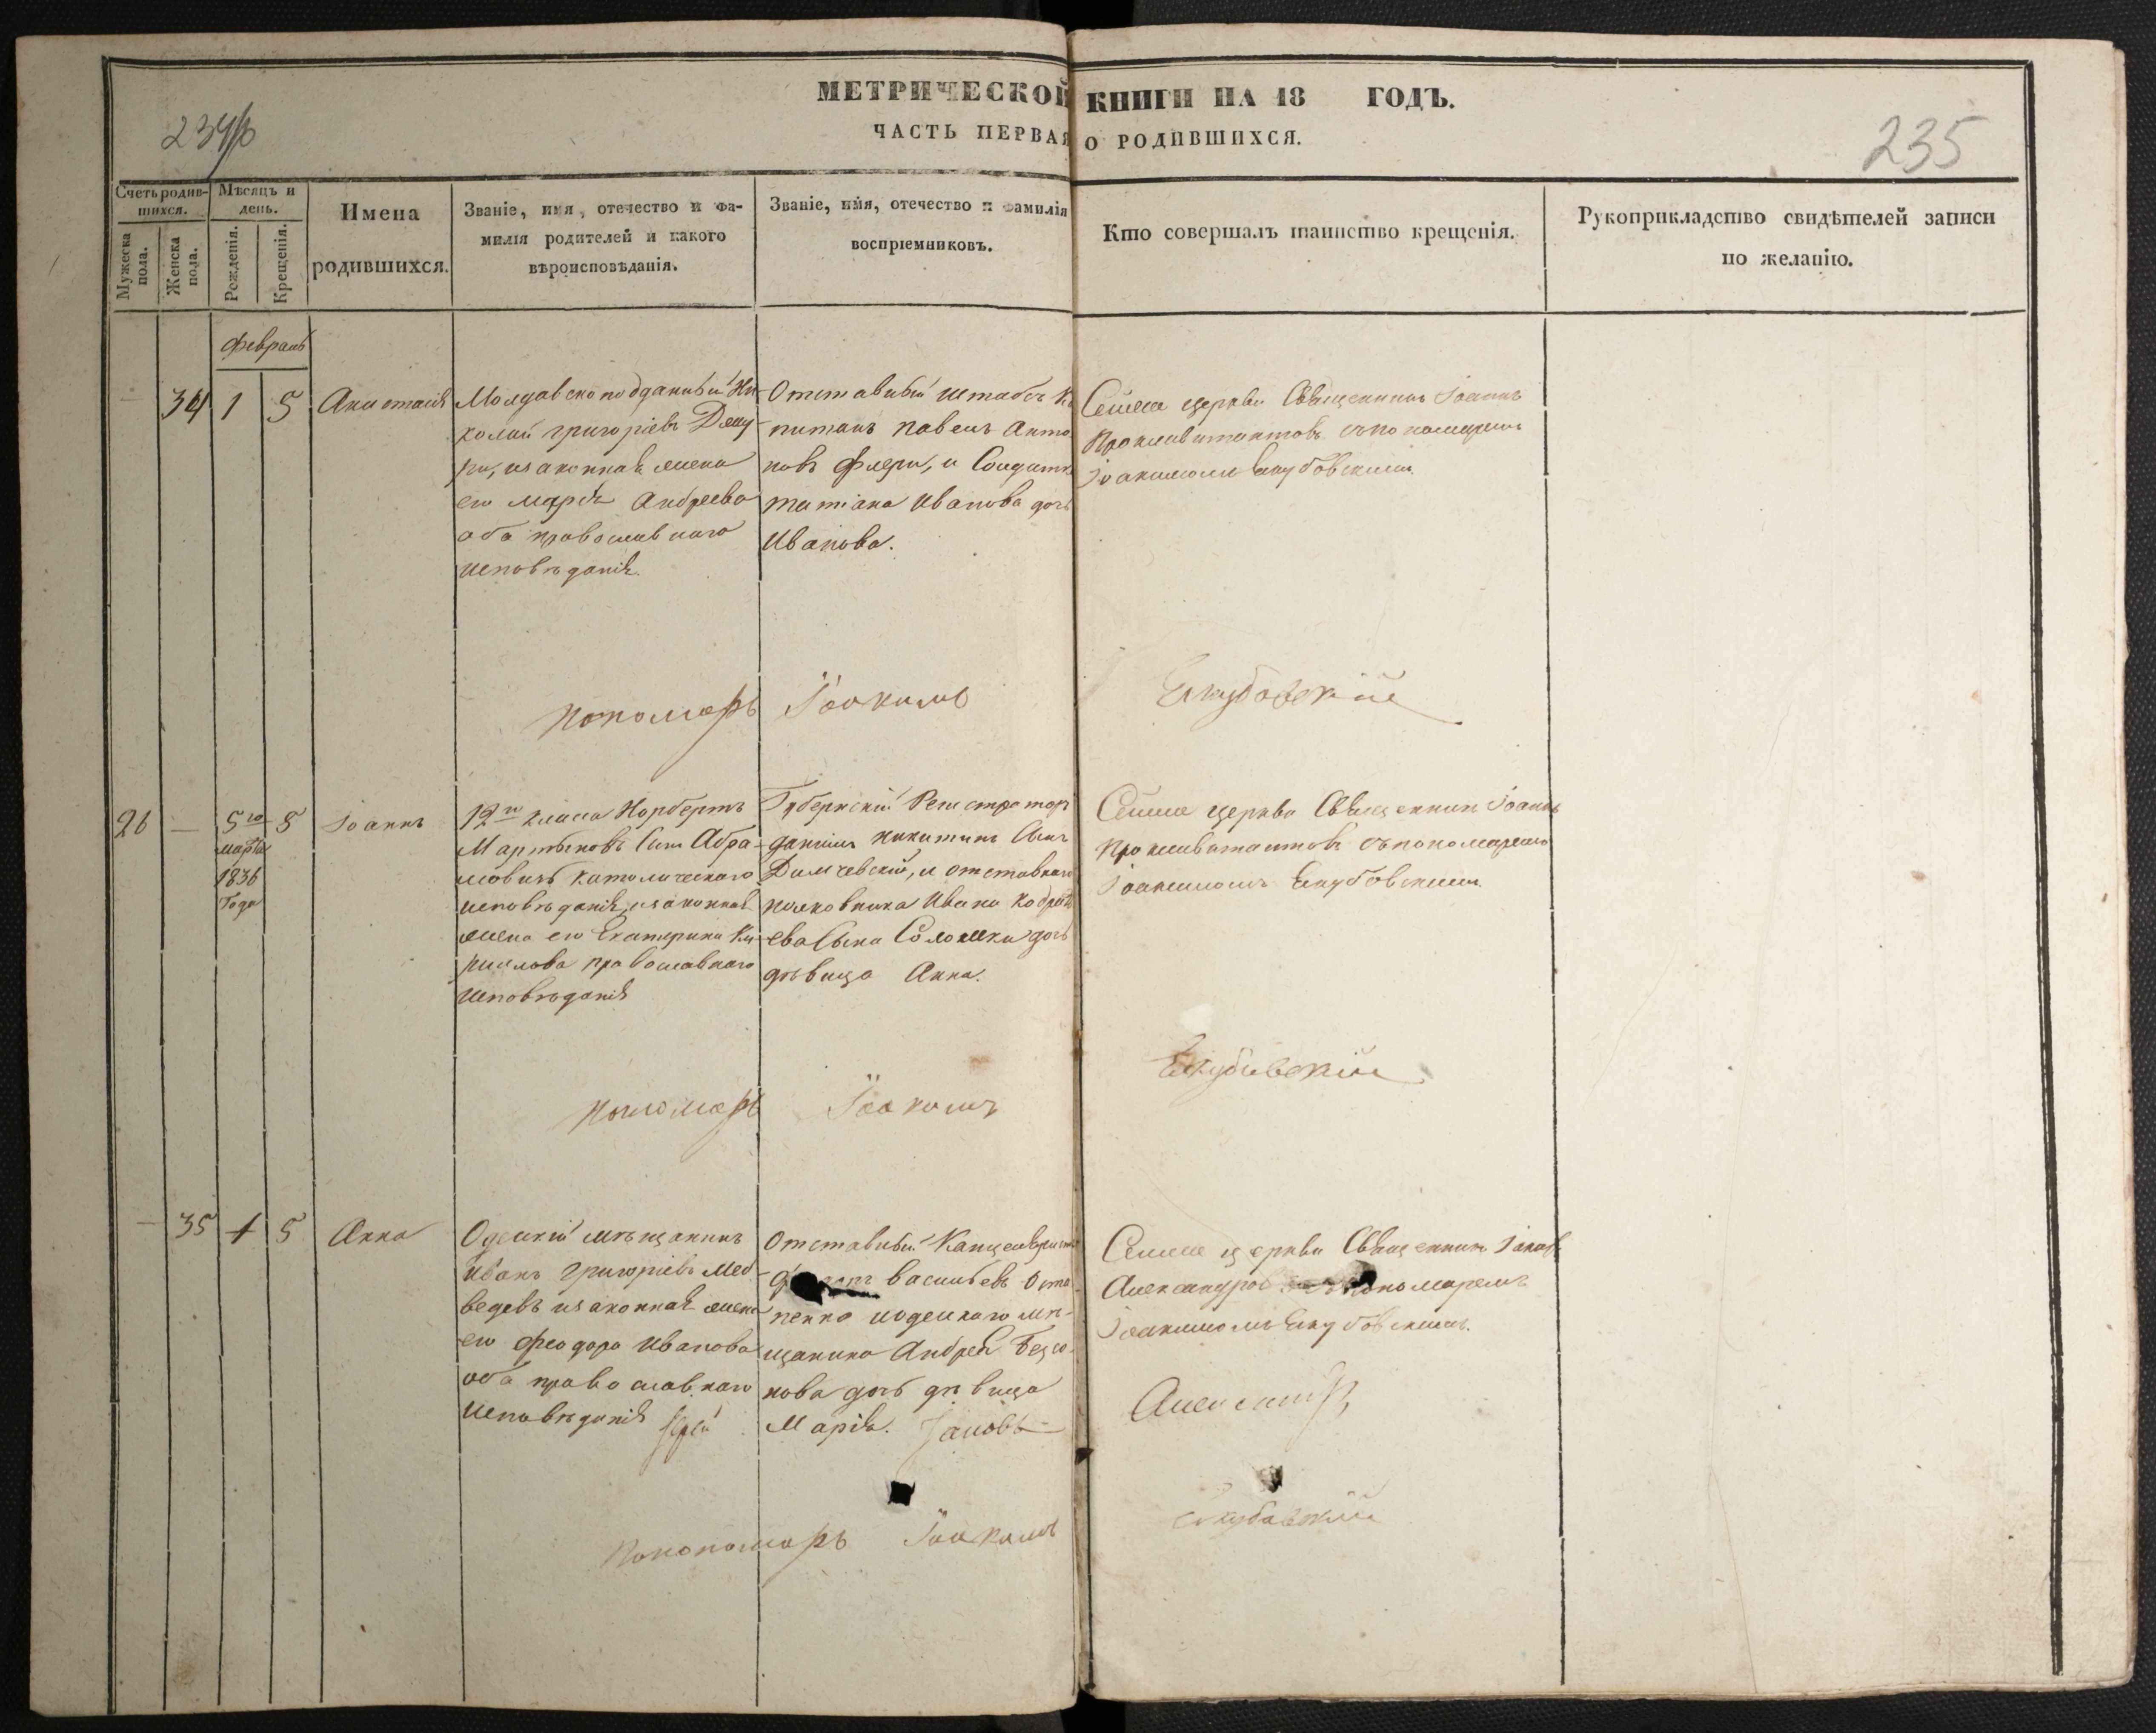 МЕТРИЧЕСКОЙ КНИГИ НА 18 ГОДЪ.
ЧАСТЬ ПЕРВАЯ О РОДИВШИХСЯ.
235
Счетъ родив-
шихся.
Мужеска пола.
Женска пола.
Мѣсяцъ и
день.
Рожденія.
Крещенія.
Имена
родившихся.
Званіе, имя, отечество и фа-
милія родителей и какого
вѣроисповѣданія.
Званіе, имя, отечество и фамилія
воспріемниковъ.
Кто совершалъ таинство крещенія.
Рукоприкладство свидѣтелей записи
по желанію.
Февраль
34 1 5
Анастасія
Молдавско подданный Ни-
колай Григоріевъ
законная жена
его Марія Андреева
оба православнаго
исповѣданія.
Отставный Штабсъ Ка
питанъ Павелъ Анто
новъ Флери, и Солдатка
татіана Иванова дочь
Иванова.
Сѣмее церкви Священникъ Іоаннъ
съ пономаремъ
Іоакимомъ Якубовскимъ.
Пономарь Іоакимъ Якубовскій
26 — 5го 5
марта
1836
года
Іоаннъ
12го класа Норбертъ
Мартыновъ Сынъ Абра-
мовичъ католическаго
исповѣданія, законная
жена его Екатерина Ки-
рилова православнаго
исповѣданія
Губернскій Регистраторъ
Никитинъ Сынъ
и отставнаго
полковника Ивана
ева Сына Соложки дочь
дѣвица Анна.
Сѣмее церкви Священникъ Іоаннъ
съ пономаремъ
Іоакимомъ Якубовскимъ.
Пономарь Іоакимъ Якубовскій
— 35 1 5
Анна
Одескій мѣщанинъ
Иванъ Григоріевъ Мед-
ведевъ законная жена
его Феодора Иванова
оба православнаго
исповѣданія
Отставный Канцеляристъ
Васильевъ Оста-
пенко и одескаго мѣ-
щанина Андрея Безсо-
нова дочь дѣвица
Марія.
Сѣмее церкви Священникъ Іаковъ
Александровъ пономаремъ
Іоакимомъ Якубовскимъ.
Іерей Іаковъ
Пономарь Іоакимъ Якубовскій